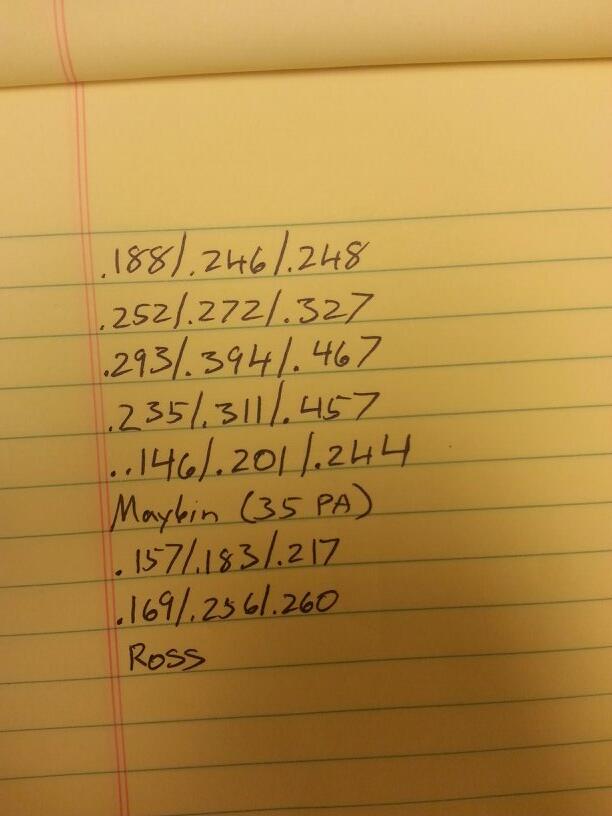 .188/.246/.248
.252/.272/.327
.293/.394/.467
.235/.311/.457
..146/.201/.244
Maybin (35 PA)
.157/.183/.217
.169/.256/.260
Ross